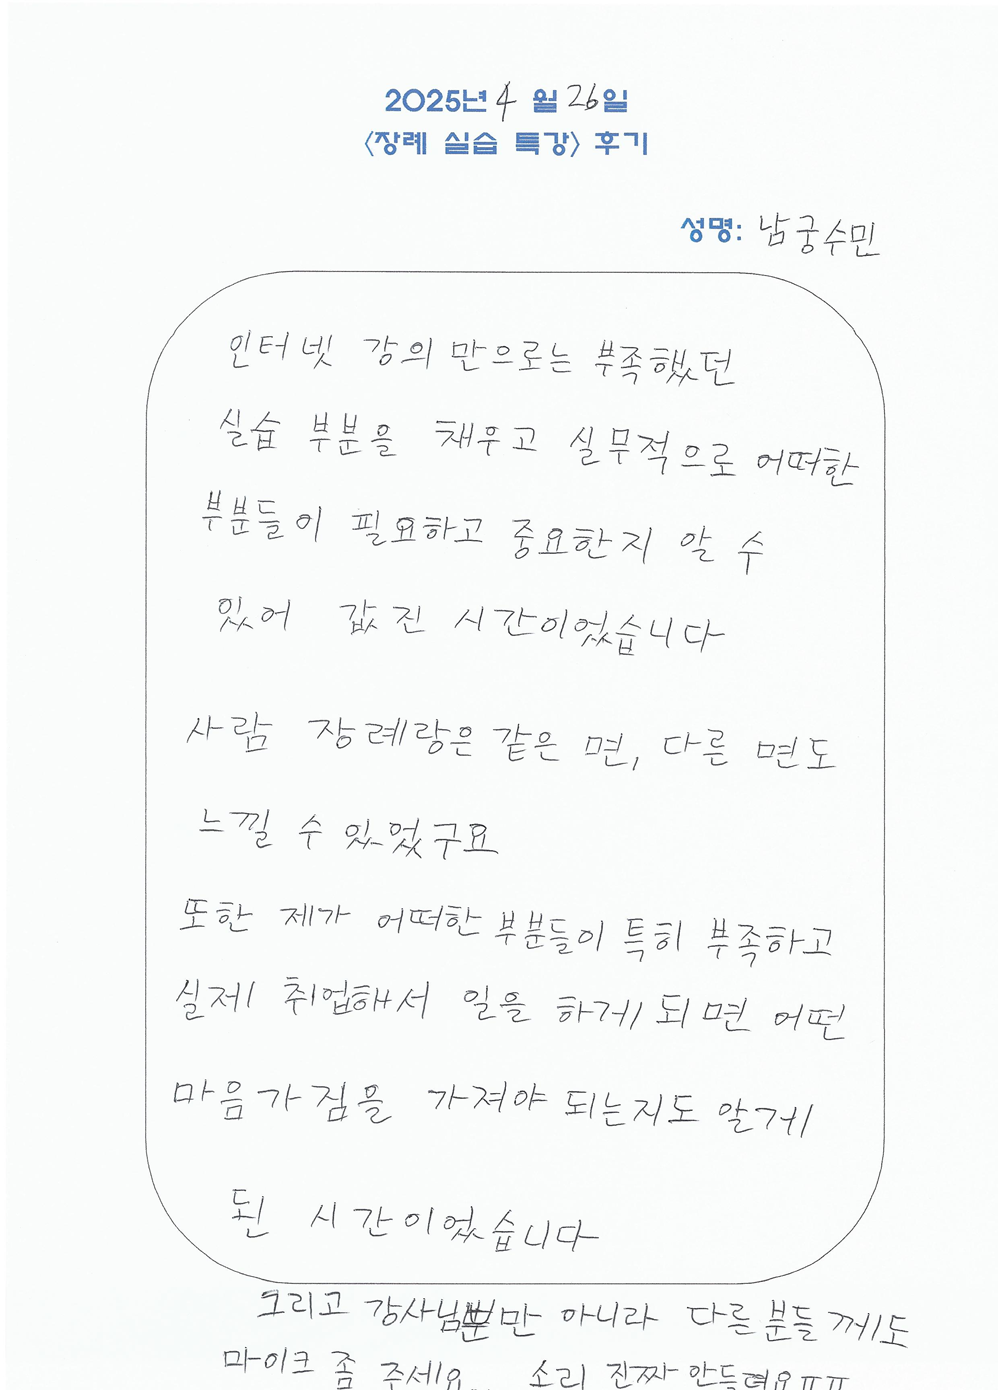 2025년 4월 26일
<장례 실습 특강> 후기
성명: 남궁수민
인터넷 강의 만으로는 부족했던
실습 부분을 채우고 실무적으로 어떠한
부분들이 필요하고 중요한지 알 수
있어 값진 시간이었습니다
사람 장례랑은 같은 면, 다른 면도
느낄 수 있었구요
또한 제가 어떠한 부분들이 특히 부족하고
실제 취업해서 일을 하게 되면 어떤
마음가짐을 가져야 되는지도 알게
된 시간이었습니다
그리고 강사님뿐만 아니라 다른 분들 께도
마이크 좀 주세요.. 소리 진짜 안들려요ㅠㅠ